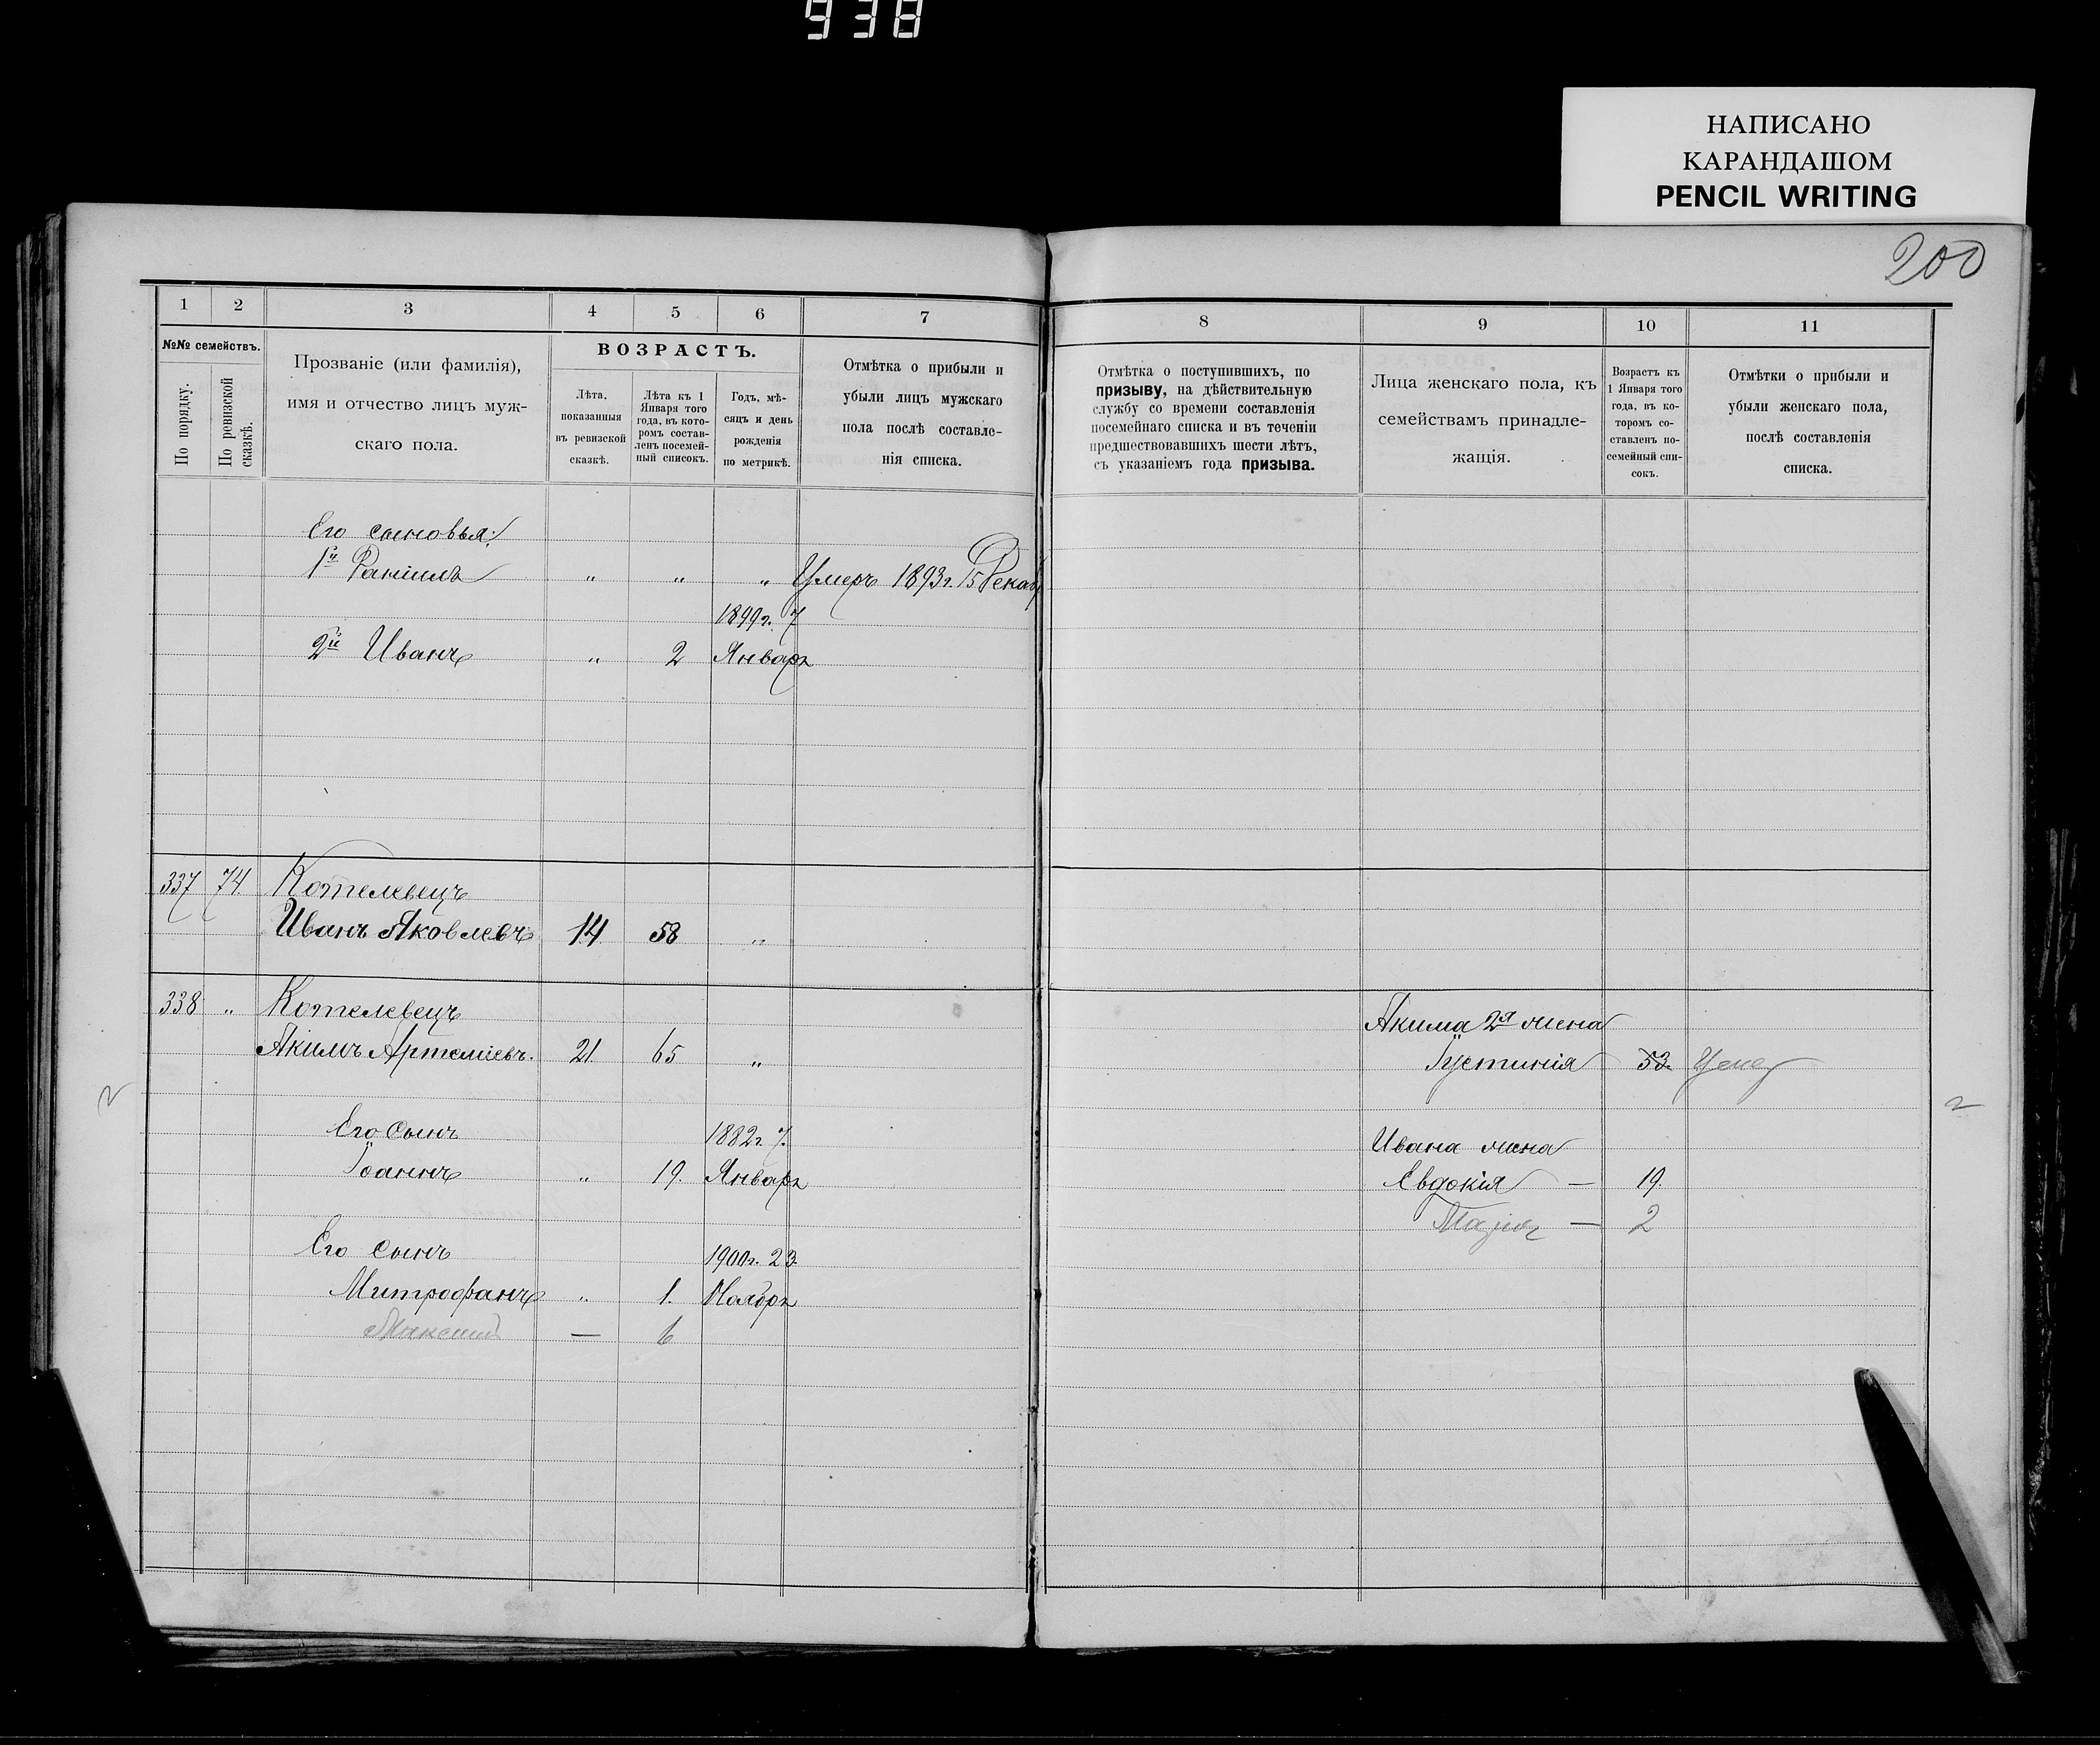 938
НАПИСАНО
КАРАНДАШОМ
PENCIL WRITING
200
1 2 3 4 5 6 7
№№ семействъ.
По порядку.
По ревизской сказкѣ.
Прозваніе (или фамилія),
имя и отчество лицъ муж-
скаго пола.
ВОЗРАСТЪ.
Лѣта,
показанныя
въ ревизской
сказкѣ.
Лѣта къ 1
Января того
года, въ кото-
ромъ состав-
ленъ посемей-
ный списокъ.
Годъ, мѣ-
сяцъ и день
рожденія
по метрикѣ.
Отмѣтка о прибыли и
убыли лицъ мужскаго
пола послѣ составле-
нія списка.
8 9 10 11
Отмѣтка о поступившихъ, по
призыву, на дѣйствительную
службу со времени составленія
посемейнаго списка и въ теченіи
предшествовавшихъ шести лѣтъ,
съ указаніемъ года призыва.
Лица женскаго пола, къ
семействамъ принадле-
жащія.
Возрастъ къ
1 Января того
года, въ ко-
торомъ со-
ставленъ по-
семейный спи-
сокъ.
Отмѣтки о прибыли и
убыли женскаго пола,
послѣ составленія
списка.
Его сыновья:
1й Даніилъ " " " Умеръ 1893г. 15 Декаб
1899г. 7
2й Иванъ " 2 Январ
337 74. Котелевецъ
Иванъ Яковлевъ 14 58 "
338 " Котелевецъ
Акимъ Артеміевъ. 21. 65 "
Его Сынъ 1882г. 7.
Іоаннъ " 19. Январ
Его сынъ 1900г. 23.
Митрофанъ " 1. Ноябр
Максим — 6
Акима 2я жена
Іустинія 53. Умер
Ивана жена
Евдокія — 19.
Марія — 2